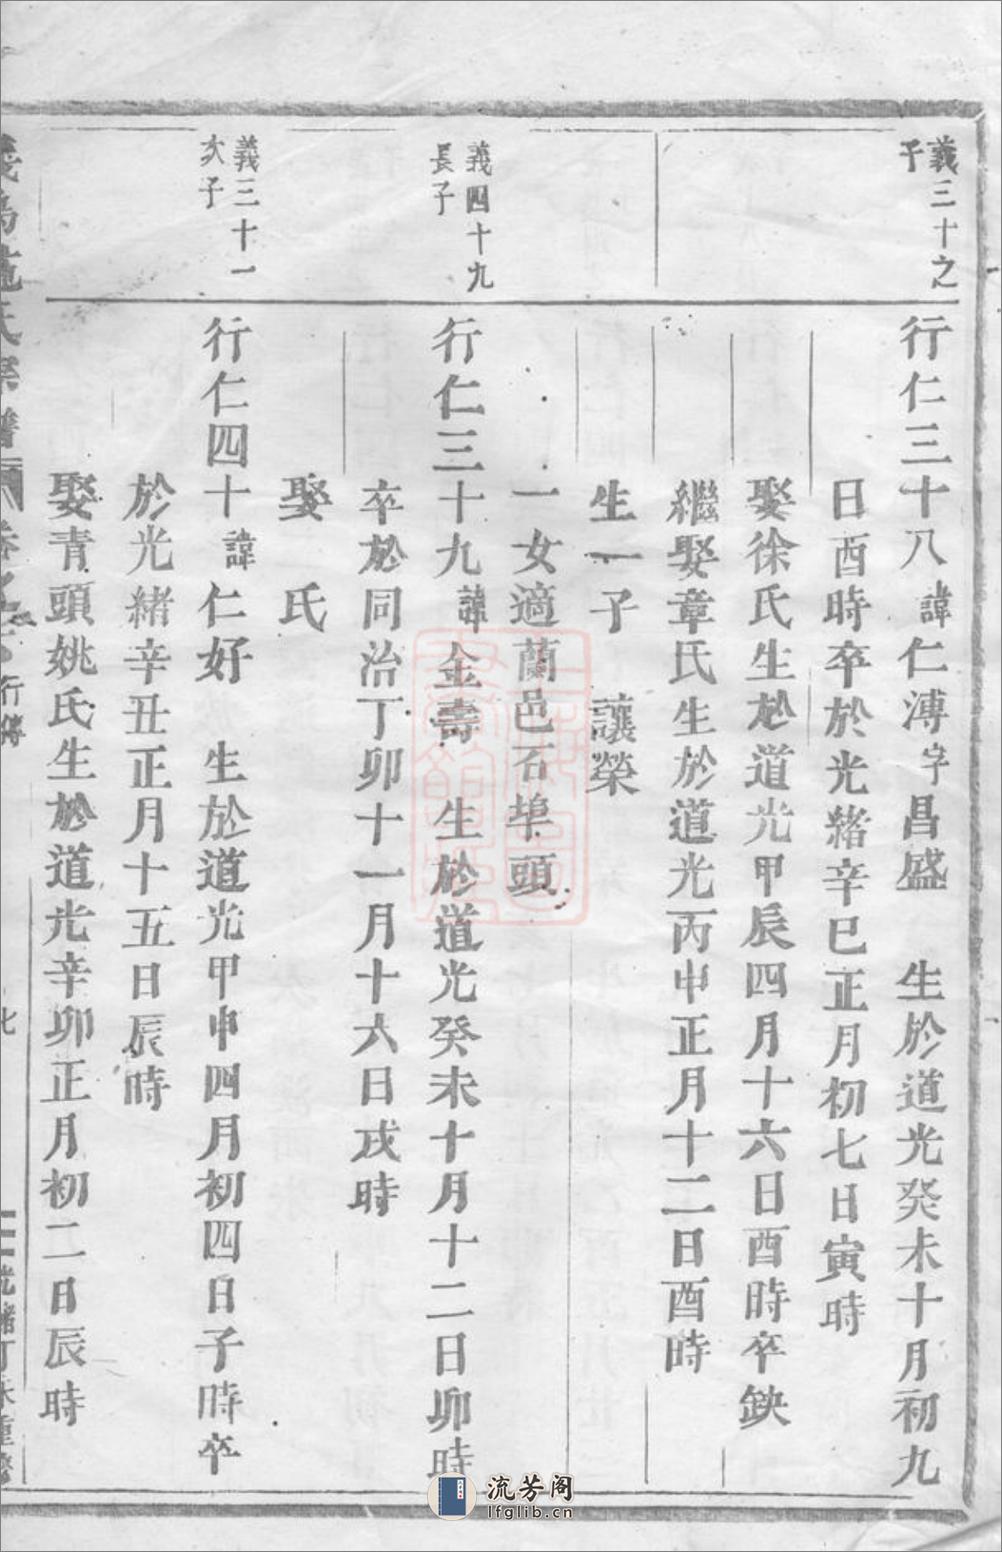 義三十之
子
行仁三十八諱仁溥字昌盛 生於道光癸未十月初九
日酉時卒於光緒辛巳正月初七日寅時
娶徐氏生於道光甲辰四月十六日酉時卒缺
繼娶章氏生於道光丙申正月十二日酉時
生一子 讓榮
一女適蘭邑石埠頭
義四十九
長子
行仁三十九諱金壽 生於道光癸未十月十二日卯時
卒於同治丁卯十一月十六日戌時
娶 氏
義三十一
次子
行仁四十諱仁好 生於道光甲申四月初四日子時卒
於光緒辛丑正月十五日辰時
娶青頭姚氏生於道光辛卯正月初二日辰時
氏宗譜
行傳
七
流芳阁
lfglib.cn